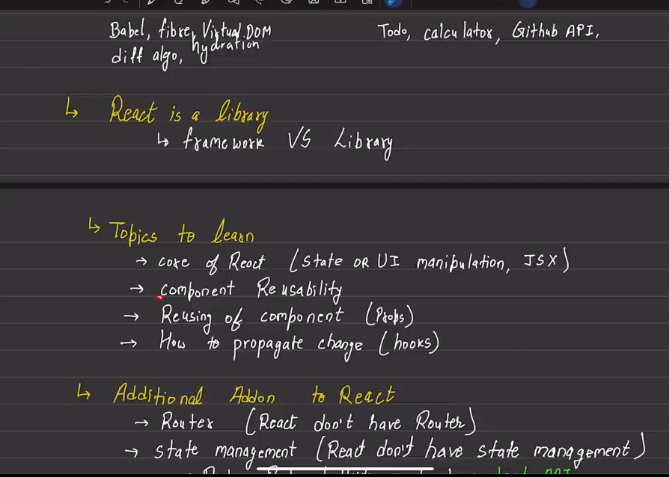 Babel, fibre, Virtual DOM
hydration
diff algo,
Todo, calculator, Github API,
↳ React is a library
↳ framework VS Library
↳ Topics to learn
→ core of React (State OR UI manipulation, JSX)
→ component Reusability
→ Reusing of component (Props)
→ How to propagate change (hooks)
↳ Additional Addon to React
→ Router (React don't have Router)
→ state management (React don't have state management)